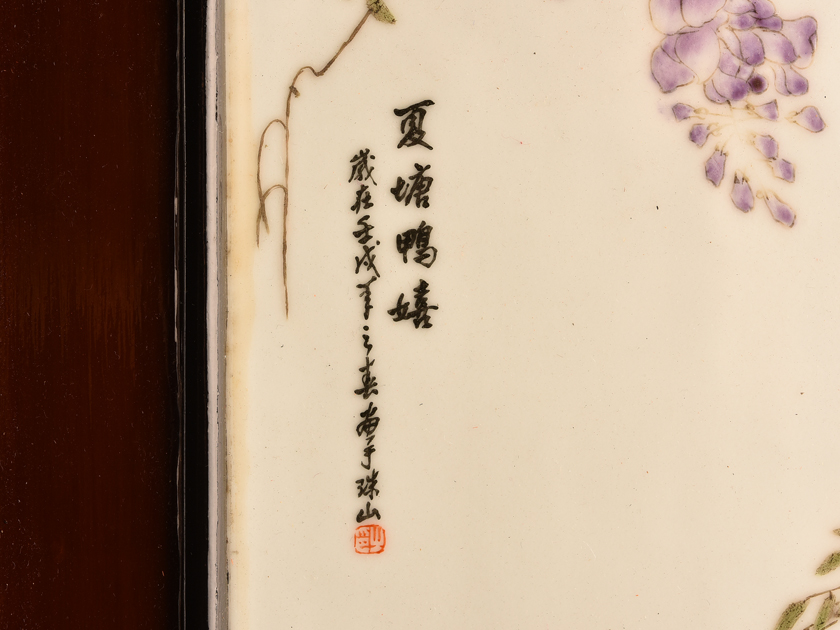 夏塘鴨嬉
歲在壬戌年之春畫于珠山